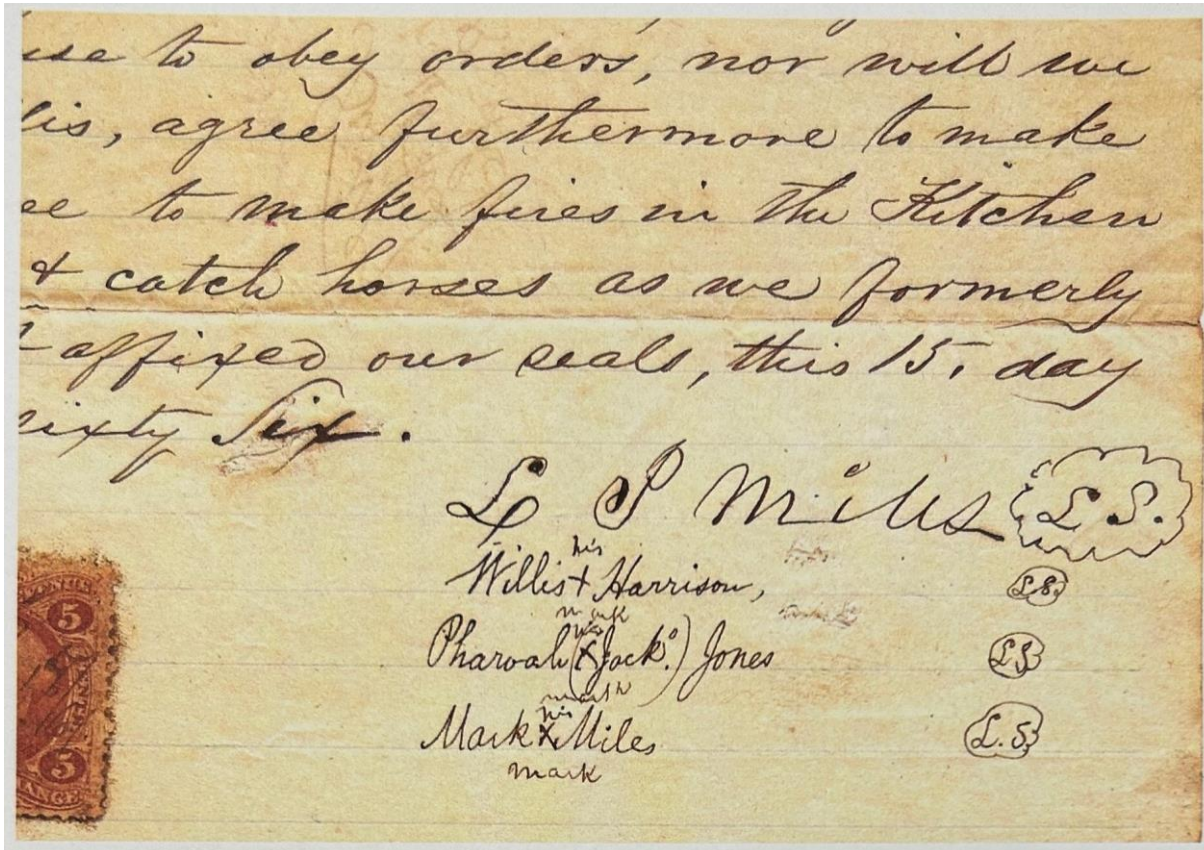 use to obey orders, nor will we
lis, agree furthermore to make
ee to make fires in the Kitchen
& catch horses as we formerly
affixed our seals, this 15. day
sixty Six.
L P Miles L S.
his
Willis + Harrison, L S.
mark
his
Pharoah (x Jack.) Jones L S
mark
his
Mark x Miles L. S.
mark
5
5